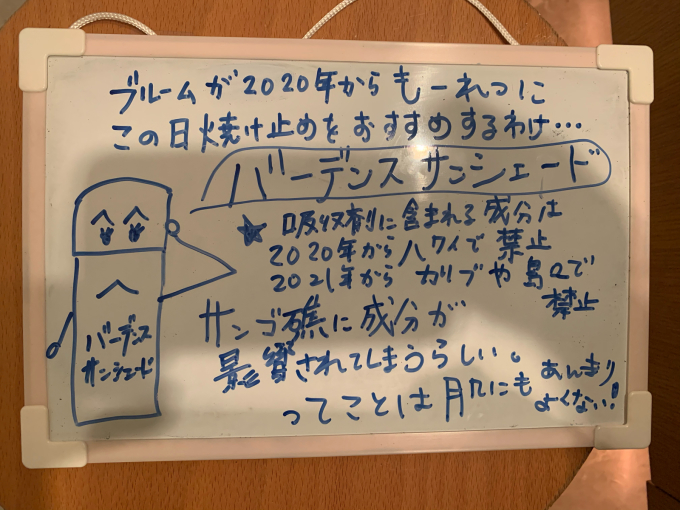 ブルームが2020年からもーれつに
この日焼け止めをおすすめするわけ…
バーデンス サンシェード
★ 吸収剤に含まれる成分は
2020年からハワイで禁止
2021年からカリブや島々で
禁止
サンゴ礁に成分が
影響されてしまうらしい。
ってことは肌にもあんまり
よくない!
バーデンス
サンシェード